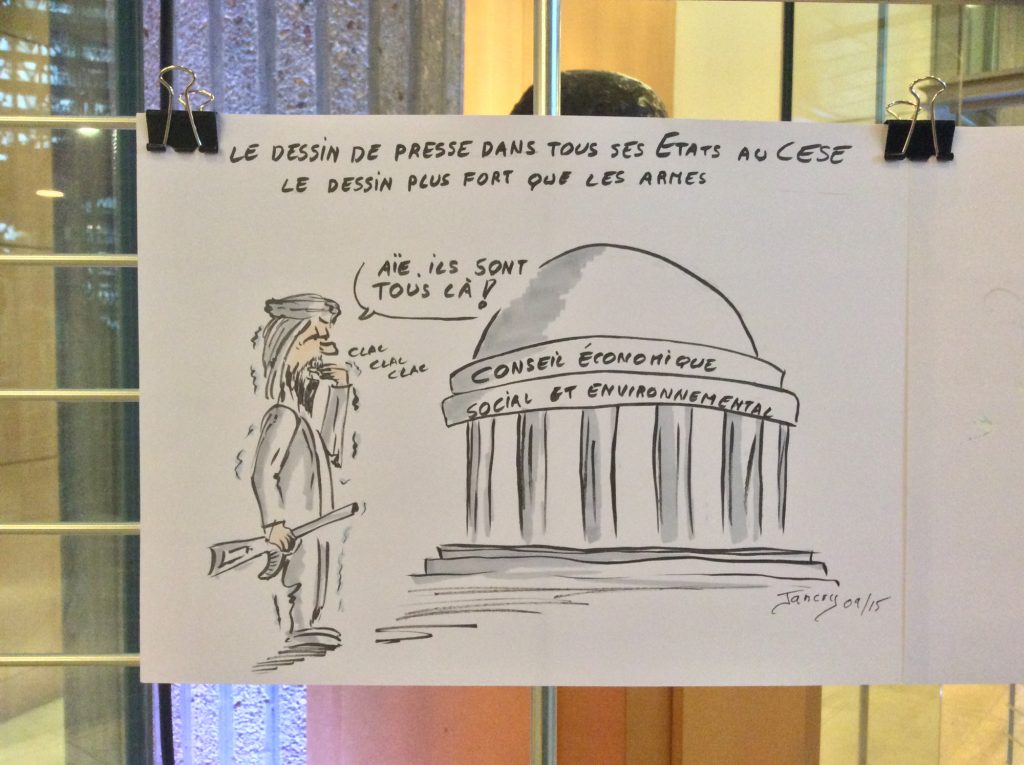 LE DESSIN DE PRESSE DANS TOUS SES ETATS AU CESE
LE DESSIN PLUS FORT QUE LES ARMES
AÏE, ILS SONT
TOUS LÀ !
CLAC
CLAC
CLAC
CONSEIL ÉCONOMIQUE
SOCIAL ET ENVIRONNEMENTAL
09/15